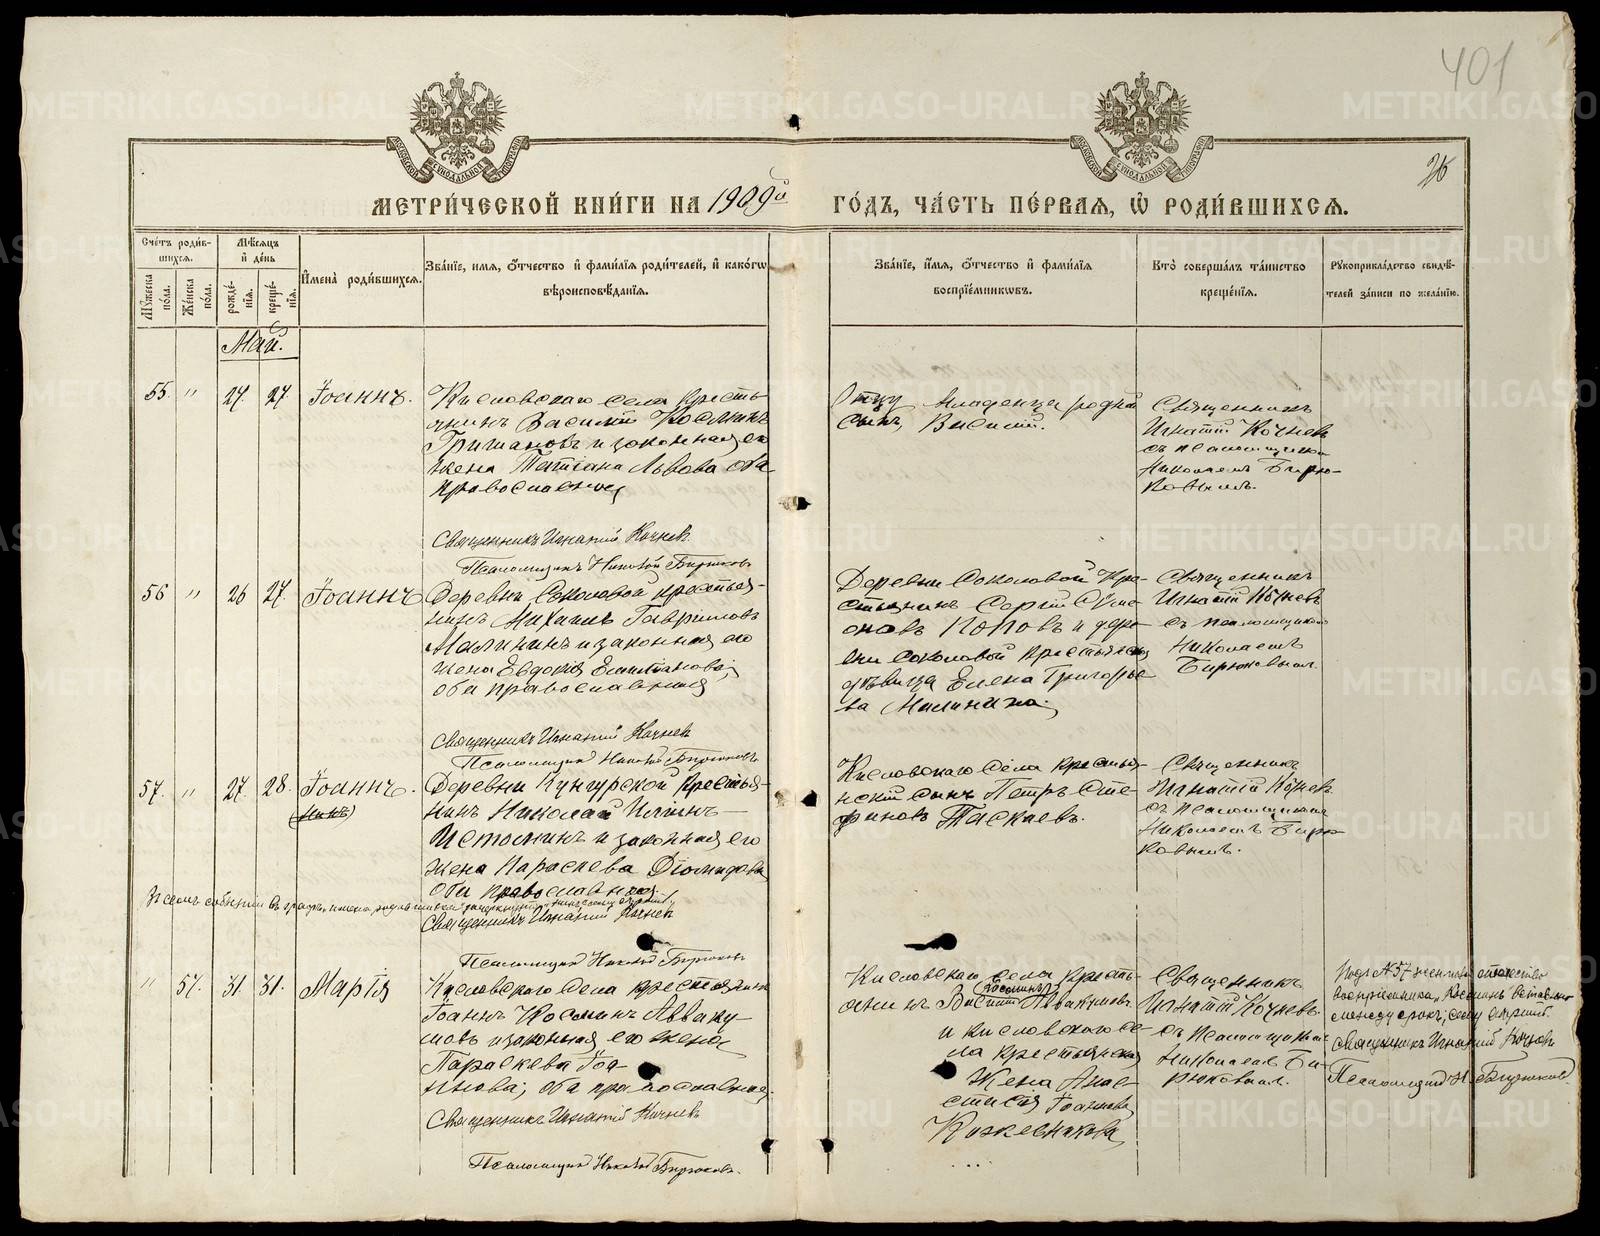 401
26
МЕТРИ́ЧЕСКОЙ КНИ́ГИ НА 1909й ГО́ДЪ, ЧА́СТЬ ПЕ́РВАЯ, Ѡ РОДИ́ВШИХСЯ.
Сче́тъ роди́в-
шихся.
Му́жеска по́ла.
Же́нска по́ла.
Мѣ́сяцъ
и҆ де́нь
рожде́-
нїя.
креще́-
нїя.
И҆мена̀ роди́вшихся.
Зва́нїе, имя, ѻ҆́тчество и҆ фами́лїя роди́телей, и҆ како́гѡ
вѣроисповѣ́данїя.
Зва́нїе, и҆́мя, ѻ҆́тчество и҆ фами́лїя
воспрїе́мникѡвъ.
Кто̀ соверша́лъ та́инство
креще́нїя.
Рꙋкоприкла́дство свидѣ́-
телей за́писи по жела́нїю.
Май.
55. " 24 27 Іоаннъ.
Кисловскаго села кресть-
янинъ Василій Косминъ
Гришановъ и законная его
жена Татіана Львова оба
православные
Священникъ Игнатій Кочневъ
Псаломщикъ Николай Бирюковъ
Отцу младенца родной
сынъ, Василій.
Священникъ
Игнатій Кочневъ
съ псаломщикомъ
Николаемъ Бирю-
ковымъ.
56 " 26 27. Іоаннъ
Деревни Соколовой крестья-
нинъ Михаилъ Гавриловъ
Малининъ и законная его
жена Евдокія Емиліанова;
оба православные
Священникъ Игнатій Кочневъ
Псаломщикъ Николай Бирюковъ
Деревни Соколовой кре-
стьянинъ Сергій
Поповъ и дере-
вни Соколовой крестьянская
дѣвица Елена Григорье-
ва Малинина.
Священникъ
Игнатій Кочневъ
съ псаломщикомъ
Николаемъ
Бирюковымъ.
57. " 27. 28. Іоаннъ.
Деревни Кунгурской крестья-
нинъ Николай Ильинъ
Истоминъ и законная его
жена Параскева Діомидова
оба православные.
Священникъ Игнатій Кочневъ
Псаломщикъ Николай Бирюковъ
Кисловскаго села крестья-
нскій сынъ Петръ Сте-
фановъ Таскаевъ.
Священникъ
Игнатій Кочневъ
съ псаломщикомъ
Николаемъ Бирю-
ковымъ.
" 57. 31. 31. Марія
Кисловскаго села крестьянинъ
Іоаннъ Косминъ Авваку-
мовъ и законная его жена
Параскева Іоа-
ннова; оба православные.
Священникъ Игнатій Кочневъ
Псаломщикъ Николай Бирюковъ.
Кисловскаго села кресть-
янинъ Косминъ Аввакумовъ
и кисловскаго се-
ла крестьянская
жена Анас-
стасія Іоаннова
Кожевникова
Священникъ
Игнатій Кочневъ
съ псаломщикомъ
Николаемъ Би-
рюковымъ.
Подъ № 57 женска отчество
воспріемника „Косминъ" вставлено
между строкъ;
Священникъ Игнатій Кочневъ
Псаломщикъ Н. Бирюковъ.
METRIKI.GASO-URAL.RU